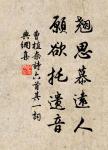 翘思慕远人
愿欲托遗音
曹植杂诗六首其一词
典网喜